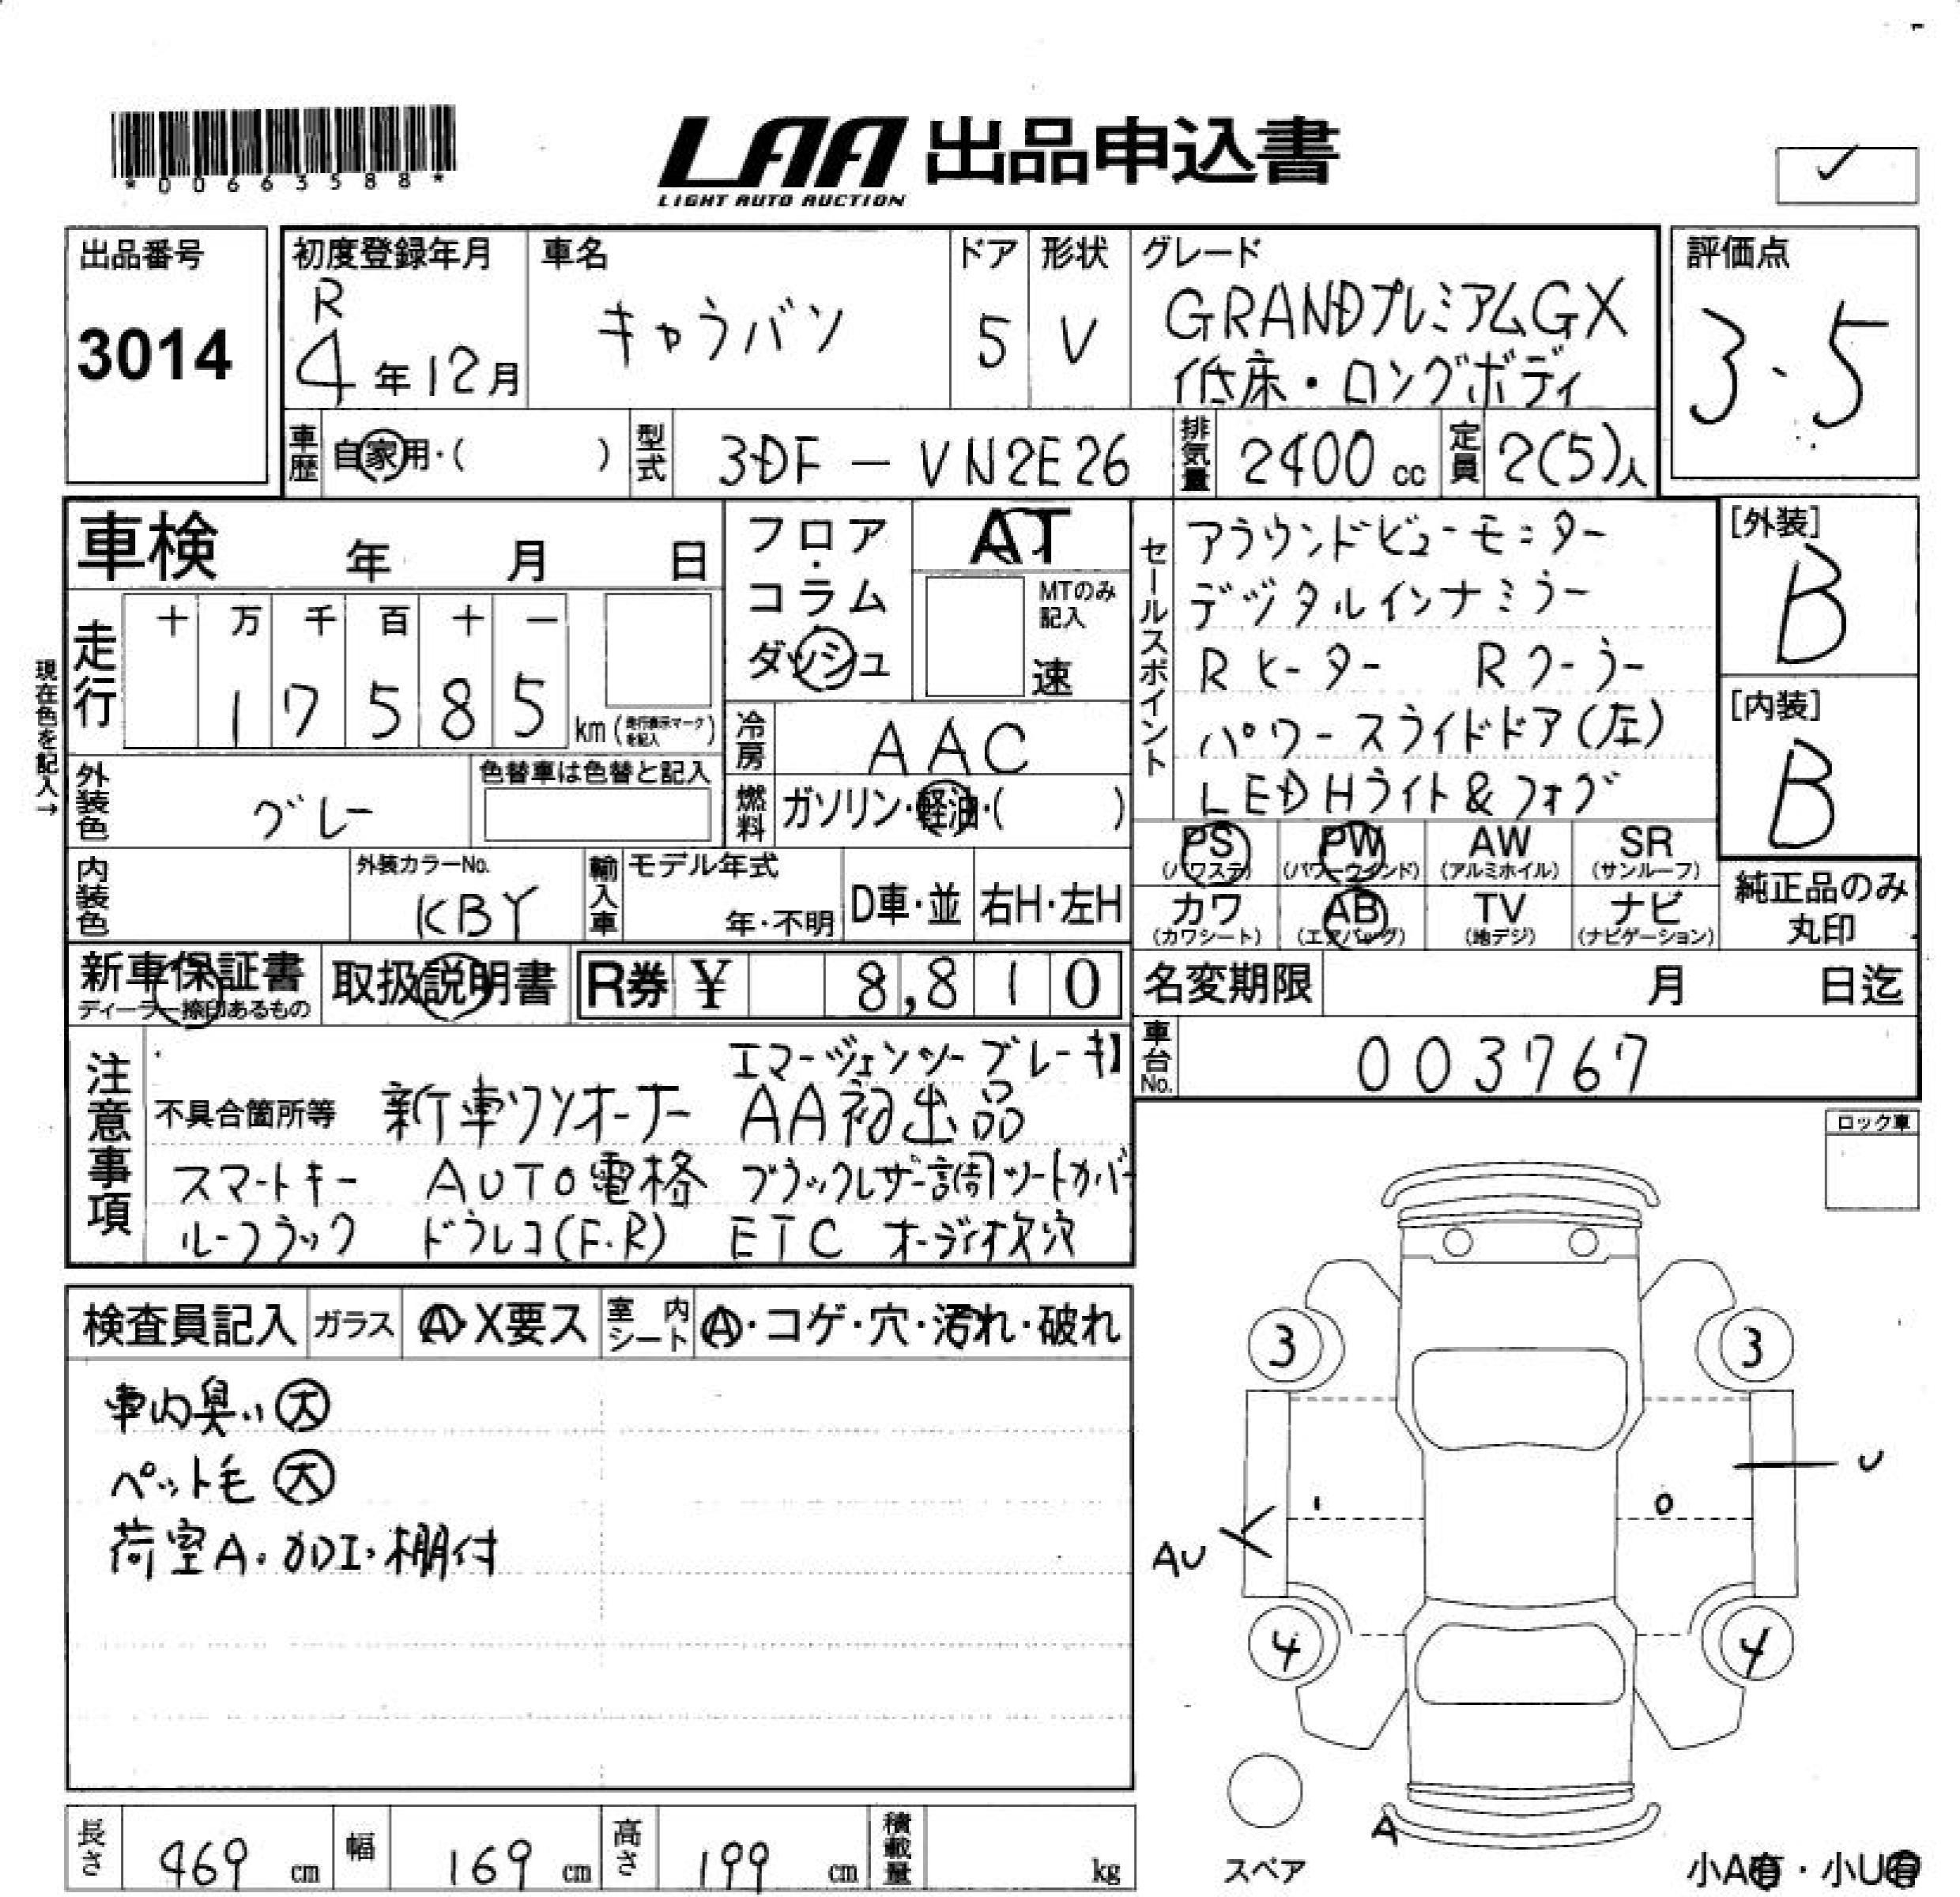 *00663588*
LAA 出品申込書
LIGHT AUTO AUCTION
✓
出品番号
3014
初度登録年月
R
4年12月
車名
キャラバン
ドア
5
形状
V
グレード
GRANDプレミアムGX
低床・ロングボディ
評価点
3.5
車歴
自家用・( )
型式
3DF - VN2E26
排気量
2400 cc
定員
2(5)人
車検 年 月 日
フロア・
コラム
ダッシュ
AT
MTのみ
記入
速
セールスポイント
アラウンドビューモニター
デジタルインナミラー
Rヒーター Rクーラー
パワースライドドア(左)
LED Hライト&フォグ
[外装]
B
[内装]
B
現在色を記入→
走行
十 万 千 百 十 一
1 7 5 8 5
km(走行表示マークを記入)
冷房
AAC
外装色
グレー
色替車は色替と記入
燃料
ガソリン・軽油・( )
PS
(パワステ)
PW
(パワーウインド)
AW
(アルミホイル)
SR
(サンルーフ)
カワ
(カワシート)
AB
(エアバッグ)
TV
(地デジ)
ナビ
(ナビゲーション)
純正品のみ
丸印
内装色
外装カラーNo.
KBY
輸入車
モデル年式
年・不明
D車・並
右H・左H
新車保証書
ディーラー捺印あるもの
取扱説明書
R券 ¥ 8,810
名変期限 月 日迄
車台No.
003767
注意事項
エマージェンシーブレーキ】
不具合箇所等 新車ワンオーナー AA初出品
スマートキー AUTO電格 ブラックレザー調シートカバー
ルーフラック ドラレコ(F.R) ETC オーディオ欠穴
ロック車
検査員記入 ガラス A・X要ス 室内シート A・コゲ・穴・汚れ・破れ
車内臭い大
ペット毛大
荷室A・カDI・棚付
3
3
U
AU
4
4
A
スペア
小A有・小U有
長さ 469 cm 幅 169 cm 高さ 199 cm 積載量 kg